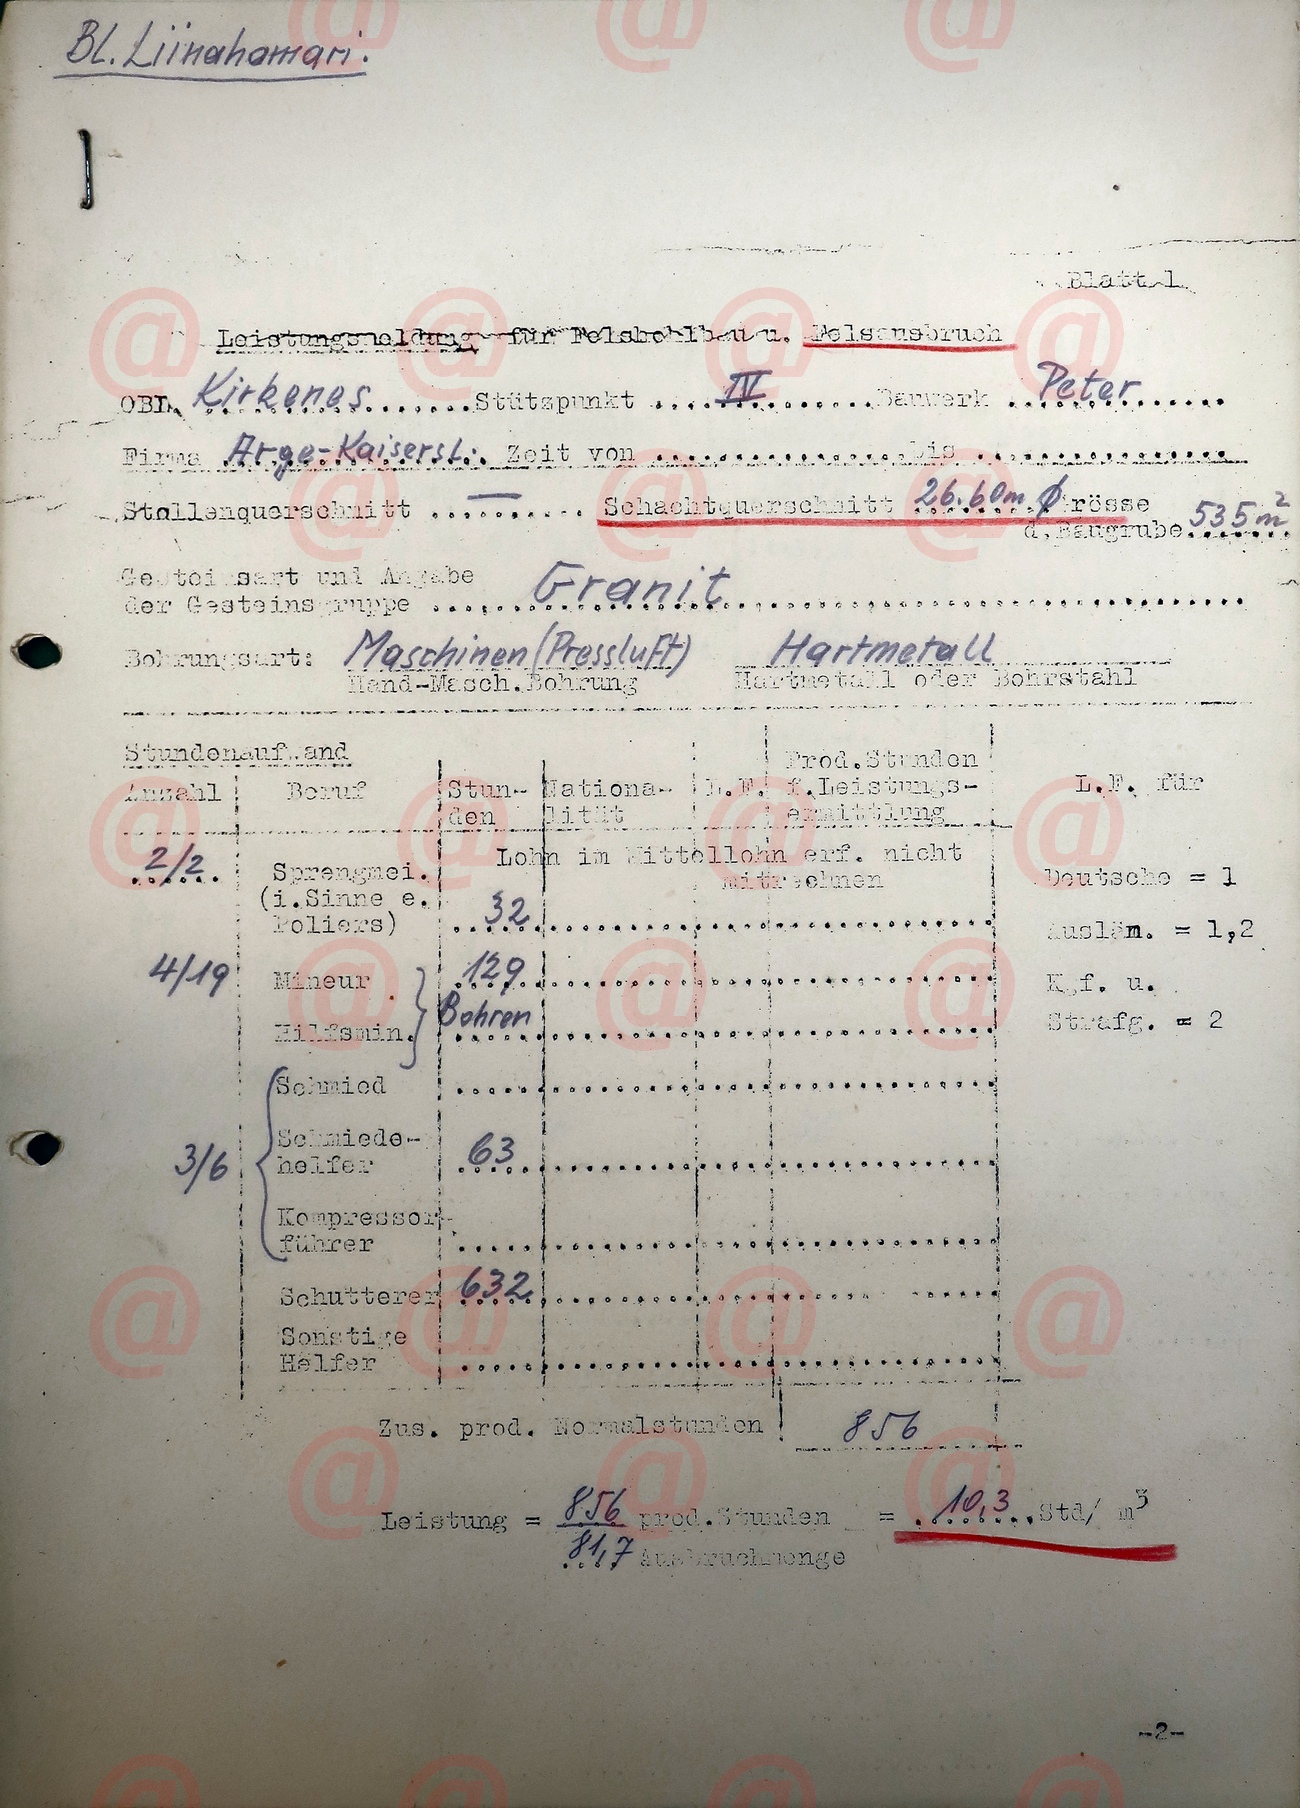 Bl. Liinahamari.
Blatt 1
Leistungsmeldung für Felshohlbau u. Felsausbruch
OBL Kirkenes Stützpunkt IV Bauwerk Peter
Firma Arge-Kaisersl. Zeit von ........ bis ........
Stollenquerschnitt — Schachtquerschnitt 26.60m Ø Grösse
d. Baugrube 535 m²
Gesteinsart und Angabe
der Gesteinsgruppe Granit
Bohrungsart: Maschinen (Pressluft) Hartmetall
Hand-Masch.Bohrung Hartmetall oder Bohrstahl
Stundenaufwand
Anzahl Beruf Stun-den Nationa-lität L.F. Prod.Stunden f.Leistungs-ermittlung L.F. für
2/2 Sprengmei. (i.Sinne e. Poliers) 32
Lohn im Mittellohn erf. nicht
mitrechnen
Deutsche = 1
Auslän. = 1,2
4/19 Mineur 129
K.f. u.
Hilfsmin. Bohren
Strafg. = 2
Schmied
3/6 Schmiede-helfer 63
Kompressor-führer
Schutterer 632
Sonstige
Helfer
Zus. prod. Normalstunden 856
Leistung = 856 prod.Stunden = 10,3 Std/ m³
81,7 Ausbruchmenge
-2-